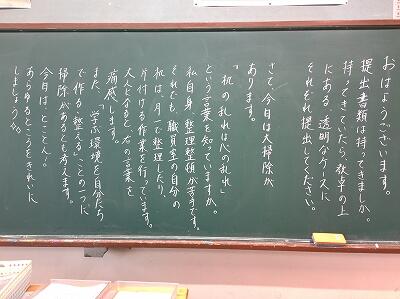 おはようございます。
提出書類は持ってきましたか。
持ってきていたら、教卓の上
にある、透明なケースに
それぞれ提出してください。
さて、今日は大掃除が
あります。
「机の乱れは心の乱れ」
という言葉を知っていますか。
私自身、整理整頓が苦手です。
それでも、職員室の自分の
机は、月一で整理したり、
片付ける作業を行っています。
大人になると、右の言葉を
痛感します。
また、「学ぶ環境を自分たち
で作る、整える」ことの一つに
掃除があるとも考えます。
今日は、とことん！
あらゆるところをきれいに
しましょうね。